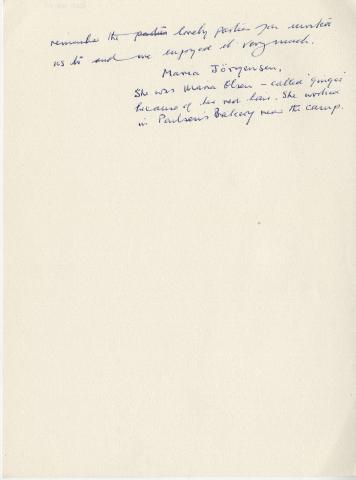 remember the parties lovely parties you invited
us to and we enjoyed it very much.
Maria Jörgensen.
She was Maria Olsen - called 'ginger'
because of her red hair. She worked
in Paulsens Bakery near the camp.